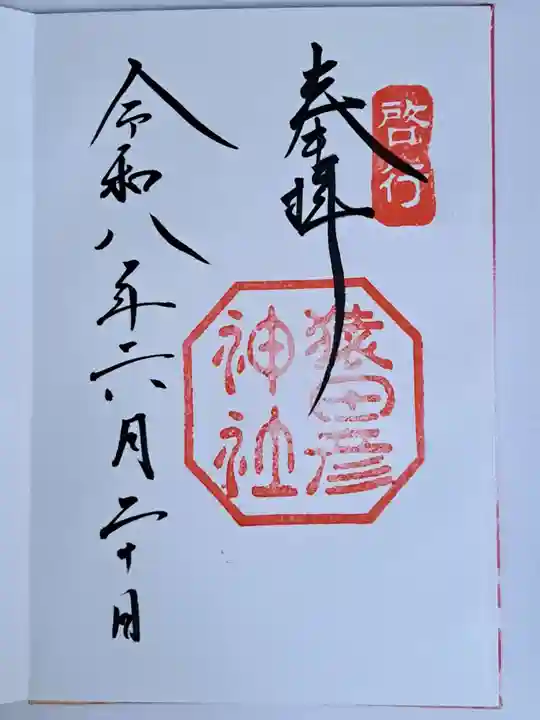 啓行
奉拝
猿田彦
神社
令和八年六月二十日